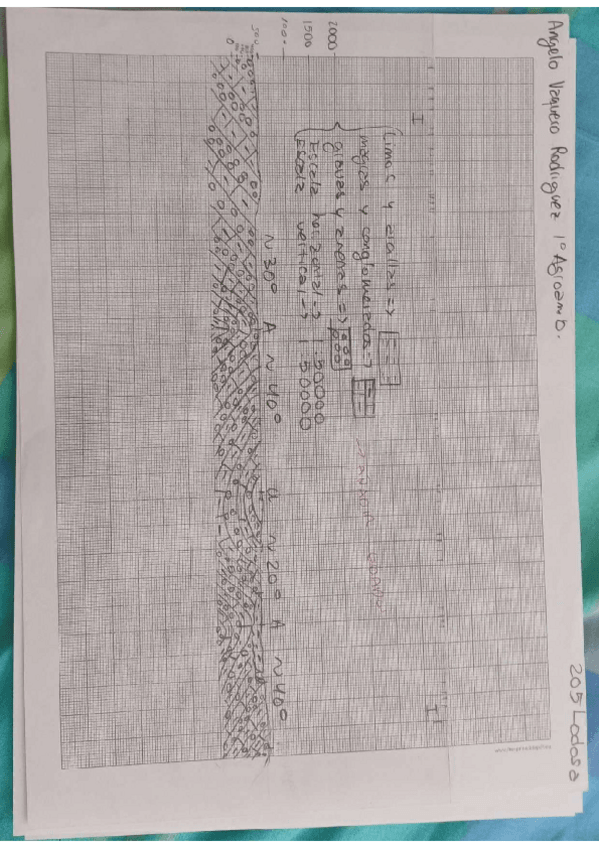 Angelo Vaquero Rodriguez 1º Agroamb.
205 Lodosa
I
I
Limos y arcillas =>
margas y conglomerados =>
gravas y arenas =>
Escala horizontal -> 1:50000
Escala vertical -> 1:50000
2000
1500
1000
500
0
~30º A ~40º a ~20º A ~40º